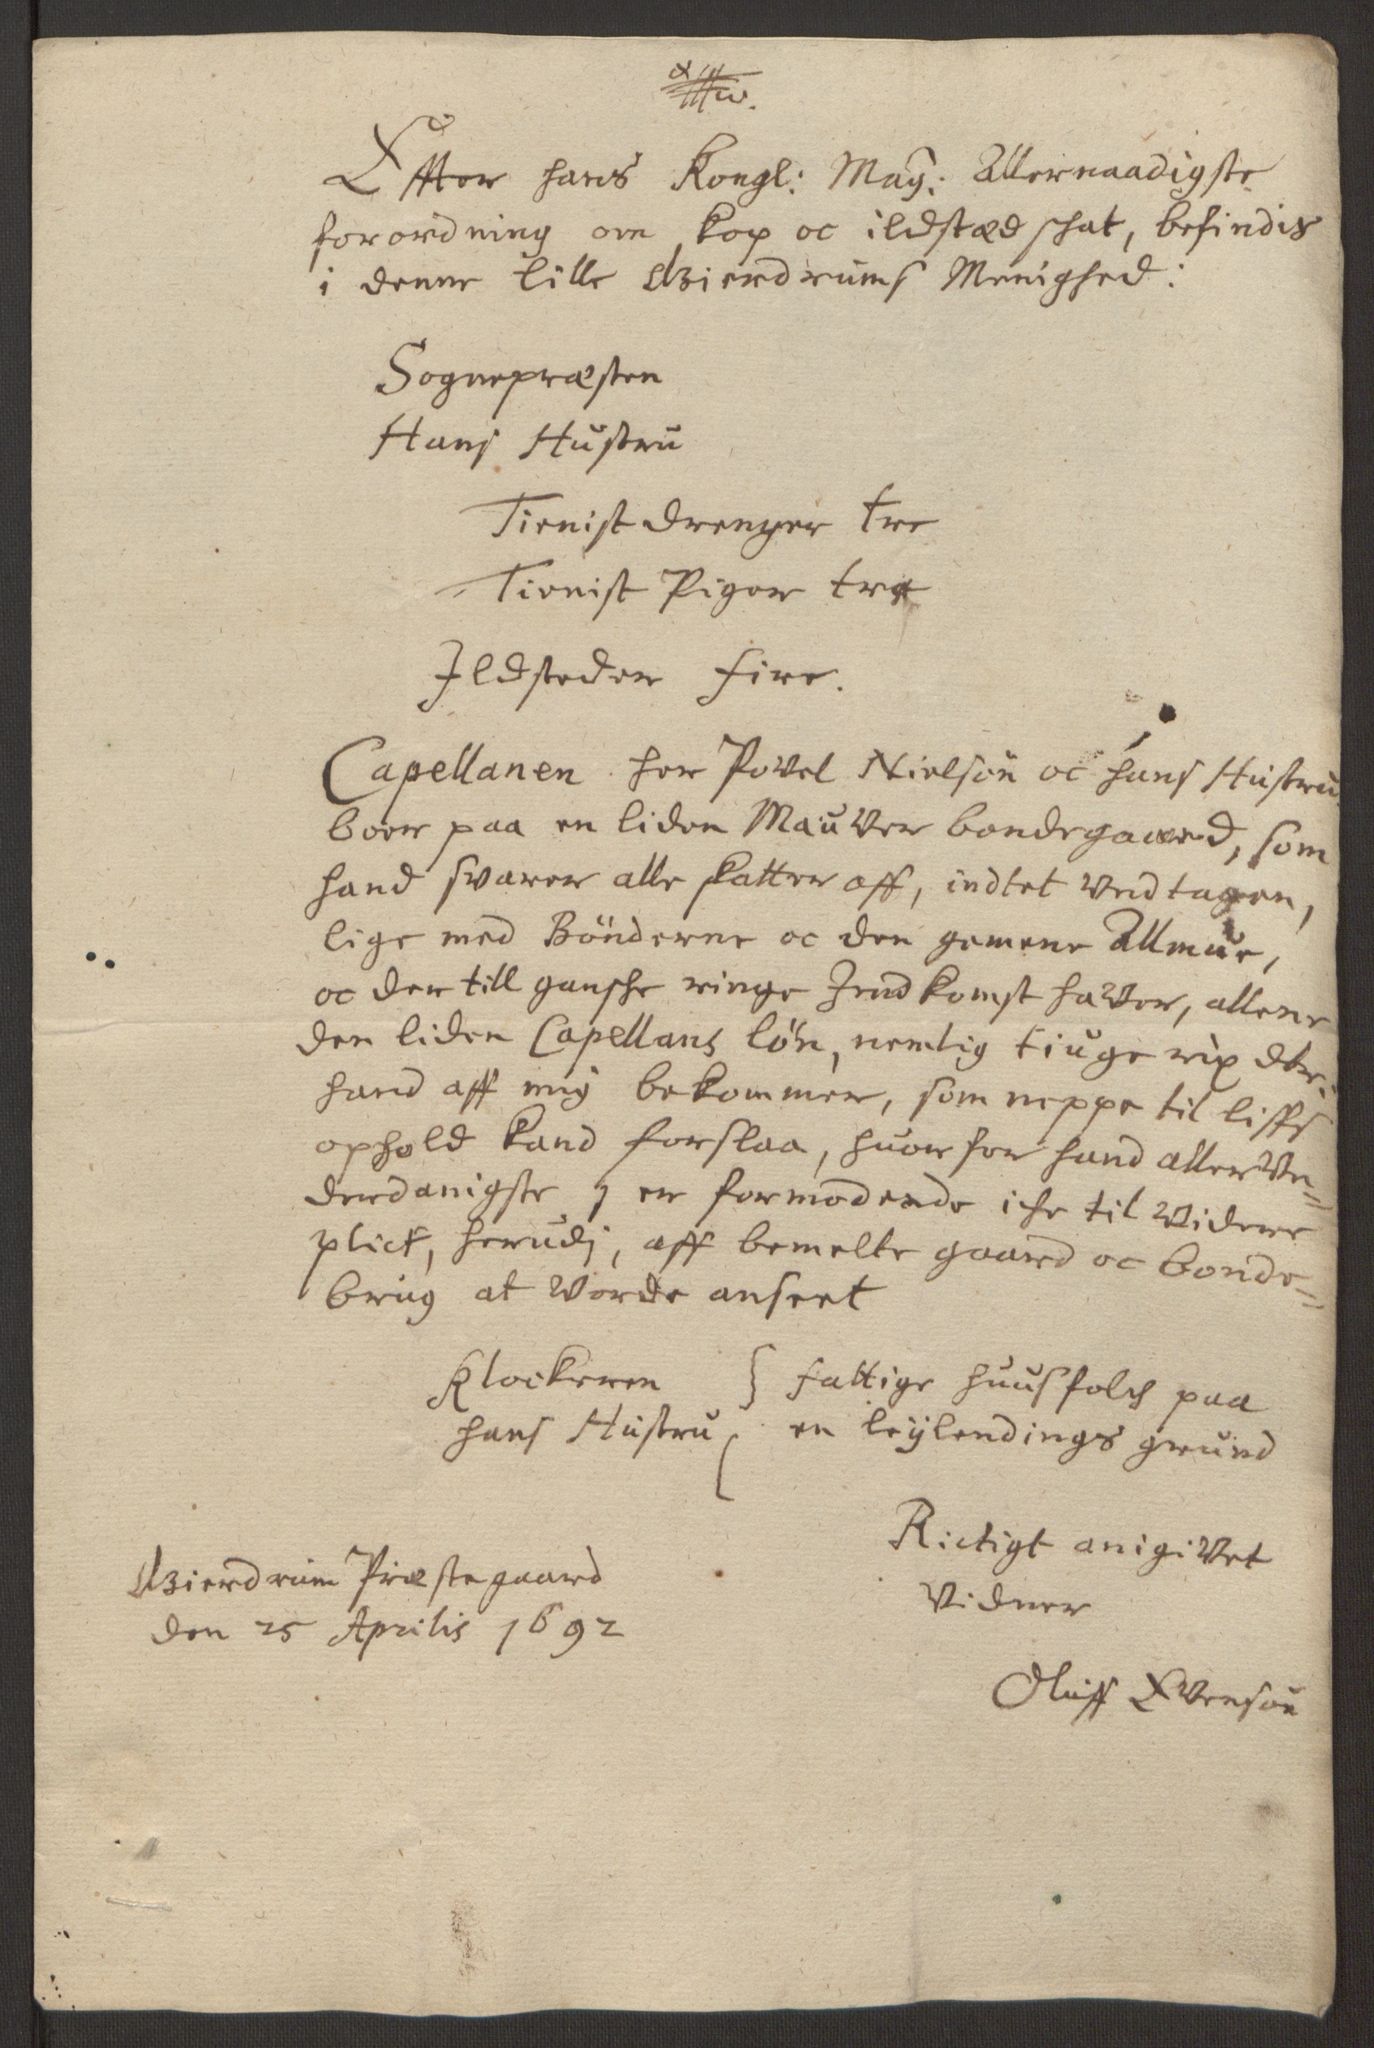 Effter hans Kongl: May: Allernaadigste
forordning om kop oc ildstæd schat, befindis
i denne lille Gierdrums Menighed:
Sognepræsten
Hans Hustru
Tienist drenger tre
Tienist Piger tre
Ildsteder fire.
Capellanen her Povel Nielsøn oc hans Hustru
boer paa en liden Mauver bondegaard, som
hand svarer alle skatter aff, indtet vndtagen,
lige med Bönderne oc den gemene Allmue,
oc der till gansche ringe Indkomst haver, allene
den liden Capellans løn, nemlig tiuge rix dlr:
hand aff mig bekommer, som neppe til liffs
ophold kand forslaa, huorfor hand allervn=
derdanigste er formodende iche til videre
plict, herudj, aff bemelte gaard oc bonde=
brug at vorde anseet
Klockeren { fattige huusfolch paa
hans Hustru en leylendings grund
Rictigt anigivet
Gierdrum Præstegaard
vidner
den 25 Aprilis 1692
Oluff Evensøn